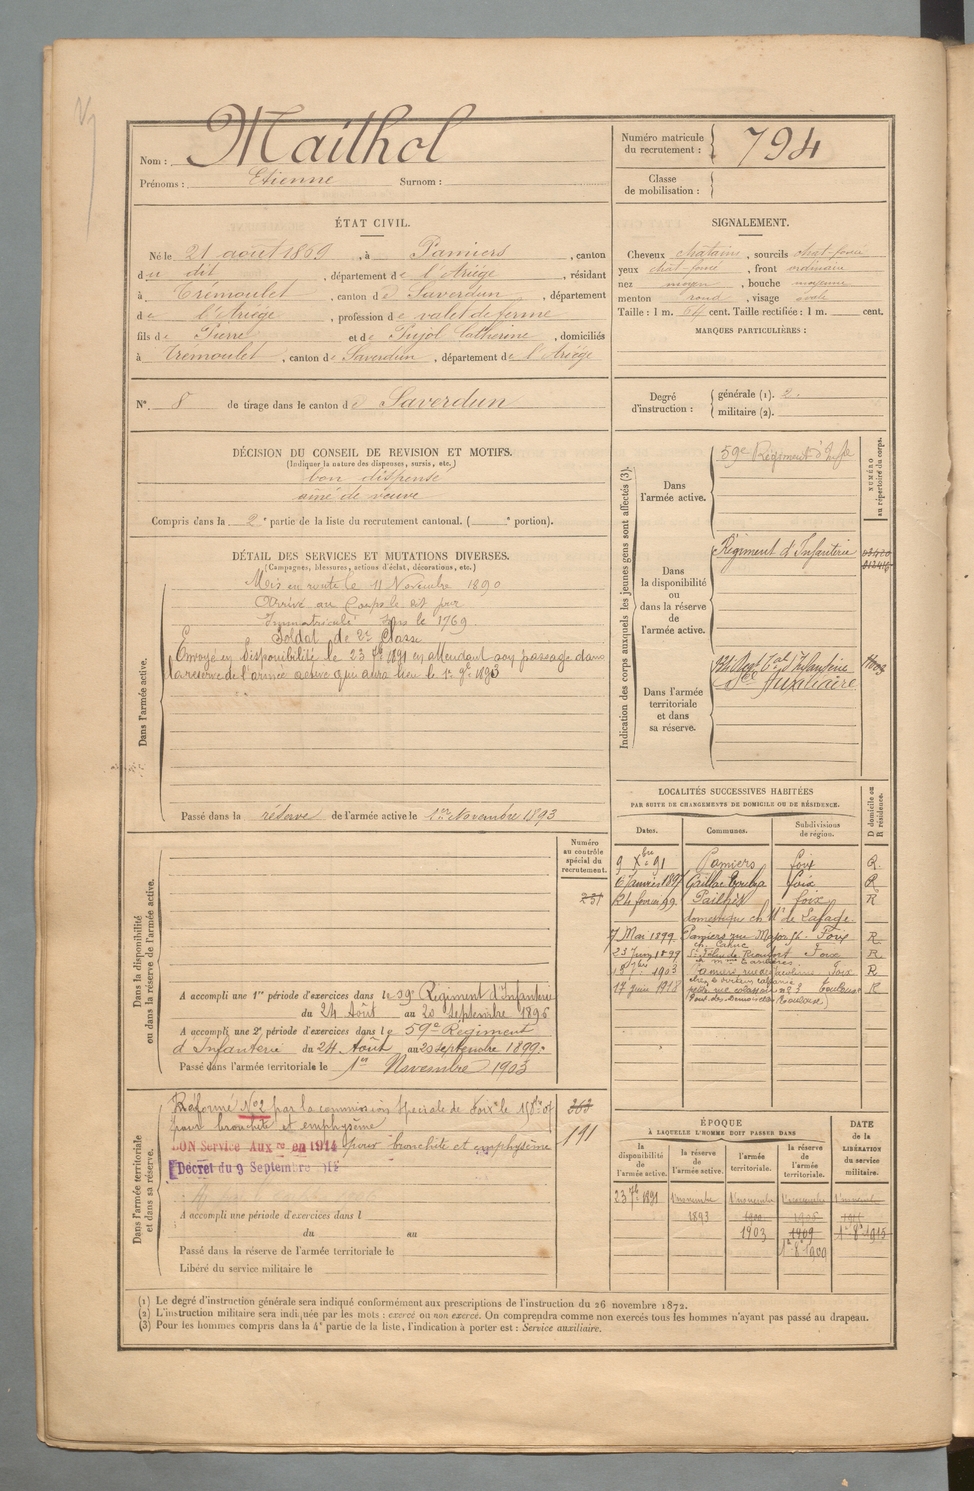 Nom : Maithol
Prénoms : Etienne Surnom :
Numéro matricule du recrutement : 794
Classe de mobilisation :
ÉTAT CIVIL.
Né le 21 août 1869, à Pamiers, canton
du dit, département de l'Ariège, résidant
à Trémoulet, canton de Saverdun, département
de l'Ariège, profession de valet de ferme
fils de Pierre et de Pujol Catherine, domiciliés
à Trémoulet, canton de Saverdun, département de l'Ariège
N° 8 de tirage dans le canton de Saverdun
SIGNALEMENT.
Cheveux chatains, sourcils chat-foncé
yeux chat-foncé, front ordinaire
nez moyen, bouche moyenne
menton rond, visage ovale
Taille : 1 m. 64 cent. Taille rectifiée : 1 m. cent.
MARQUES PARTICULIÈRES :
Degré d'instruction :
générale (1). 2.
militaire (2).
DÉCISION DU CONSEIL DE REVISION ET MOTIFS.
(Indiquer la nature des dispenses, sursis, etc.)
bon dispensé
ainé de veuve
Compris dans la 2e partie de la liste du recrutement cantonal. ( e portion).
DÉTAIL DES SERVICES ET MUTATIONS DIVERSES.
(Campagnes, blessures, actions d'éclat, décorations, etc.)
Dans l'armée active.
Mis en route le 11 Novembre 1890
Arrivé au Corps le dit jour
Immatriculé sous le 1769.
Soldat de 2e Classe
Envoyé en disponibilité le 23 7bre 1891 en attendant son passage dans
la réserve de l'armée active qui aura lieu le 1er 9bre 1893
Passé dans la réserve de l'armée active le 1er Novembre 1893
Indication des corps auxquels les jeunes gens sont affectés (3).
NUMÉRO au répertoire du corps.
Dans l'armée active.
59e Régiment d'Infie
Dans la disponibilité ou dans la réserve de l'armée active.
Régiment d'Infanterie
Dans l'armée territoriale et dans sa réserve.
Auxiliaire
LOCALITÉS SUCCESSIVES HABITÉES
PAR SUITE DE CHANGEMENTS DE DOMICILE OU DE RÉSIDENCE.
Dates. Communes. Subdivisions de région. D domicile ou R résidence.
9 Xbre 91 Pamiers foix R.
foix R
24 février 99 Pailhès foix R
domestique ch Mr de Lafage.
7 Mai 1899 Pamiers rue Major Foix R.
Foix R
1903 Foix R
17 juin 1918 Toulouse R
Numéro au contrôle spécial du recrutement.
231
Dans la disponibilité ou dans la réserve de l'armée active.
A accompli une 1re période d'exercices dans le 59e Régiment d'Infanterie
du 24 Août au 20 Septembre 1896
A accompli une 2e période d'exercices dans le 59e Régiment
d'Infanterie du 24 Août au 20 septembre 1899.
Passé dans l'armée territoriale le 1er Novembre 1903
Dans l'armée territoriale et dans sa réserve.
Réformé N°2 par la commission spéciale de Foix le
pour bronchite et emphysème
BON Service Auxre en 1914 pour bronchite et emphysème
Décret du 9 Septembre
363
191
A accompli une période d'exercices dans l
du au
Passé dans la réserve de l'armée territoriale le
Libéré du service militaire le
ÉPOQUE
À LAQUELLE L'HOMME DOIT PASSER DANS
la disponibilité de l'armée active. la réserve de l'armée active. l'armée territoriale. la réserve de l'armée territoriale.
DATE de la LIBÉRATION du service militaire.
23 7bre 1891 1 novembre 1 novembre 1 novembre 1 novembre
1893 1900
1903 1909
(1) Le degré d'instruction générale sera indiqué conformément aux prescriptions de l'instruction du 26 novembre 1872.
(2) L'instruction militaire sera indiquée par les mots : exercé ou non exercé. On comprendra comme non exercés tous les hommes n'ayant pas passé au drapeau.
(3) Pour les hommes compris dans la 4e partie de la liste, l'indication à porter est : Service auxiliaire.